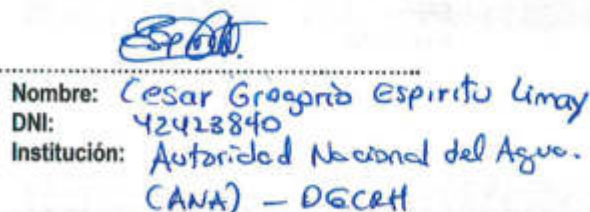 Nombre: Cesar Gregorio Espiritu Limay
DNI: 42423840
Institución: Autoridad Nacional del Agua.
(ANA) - DGCRH